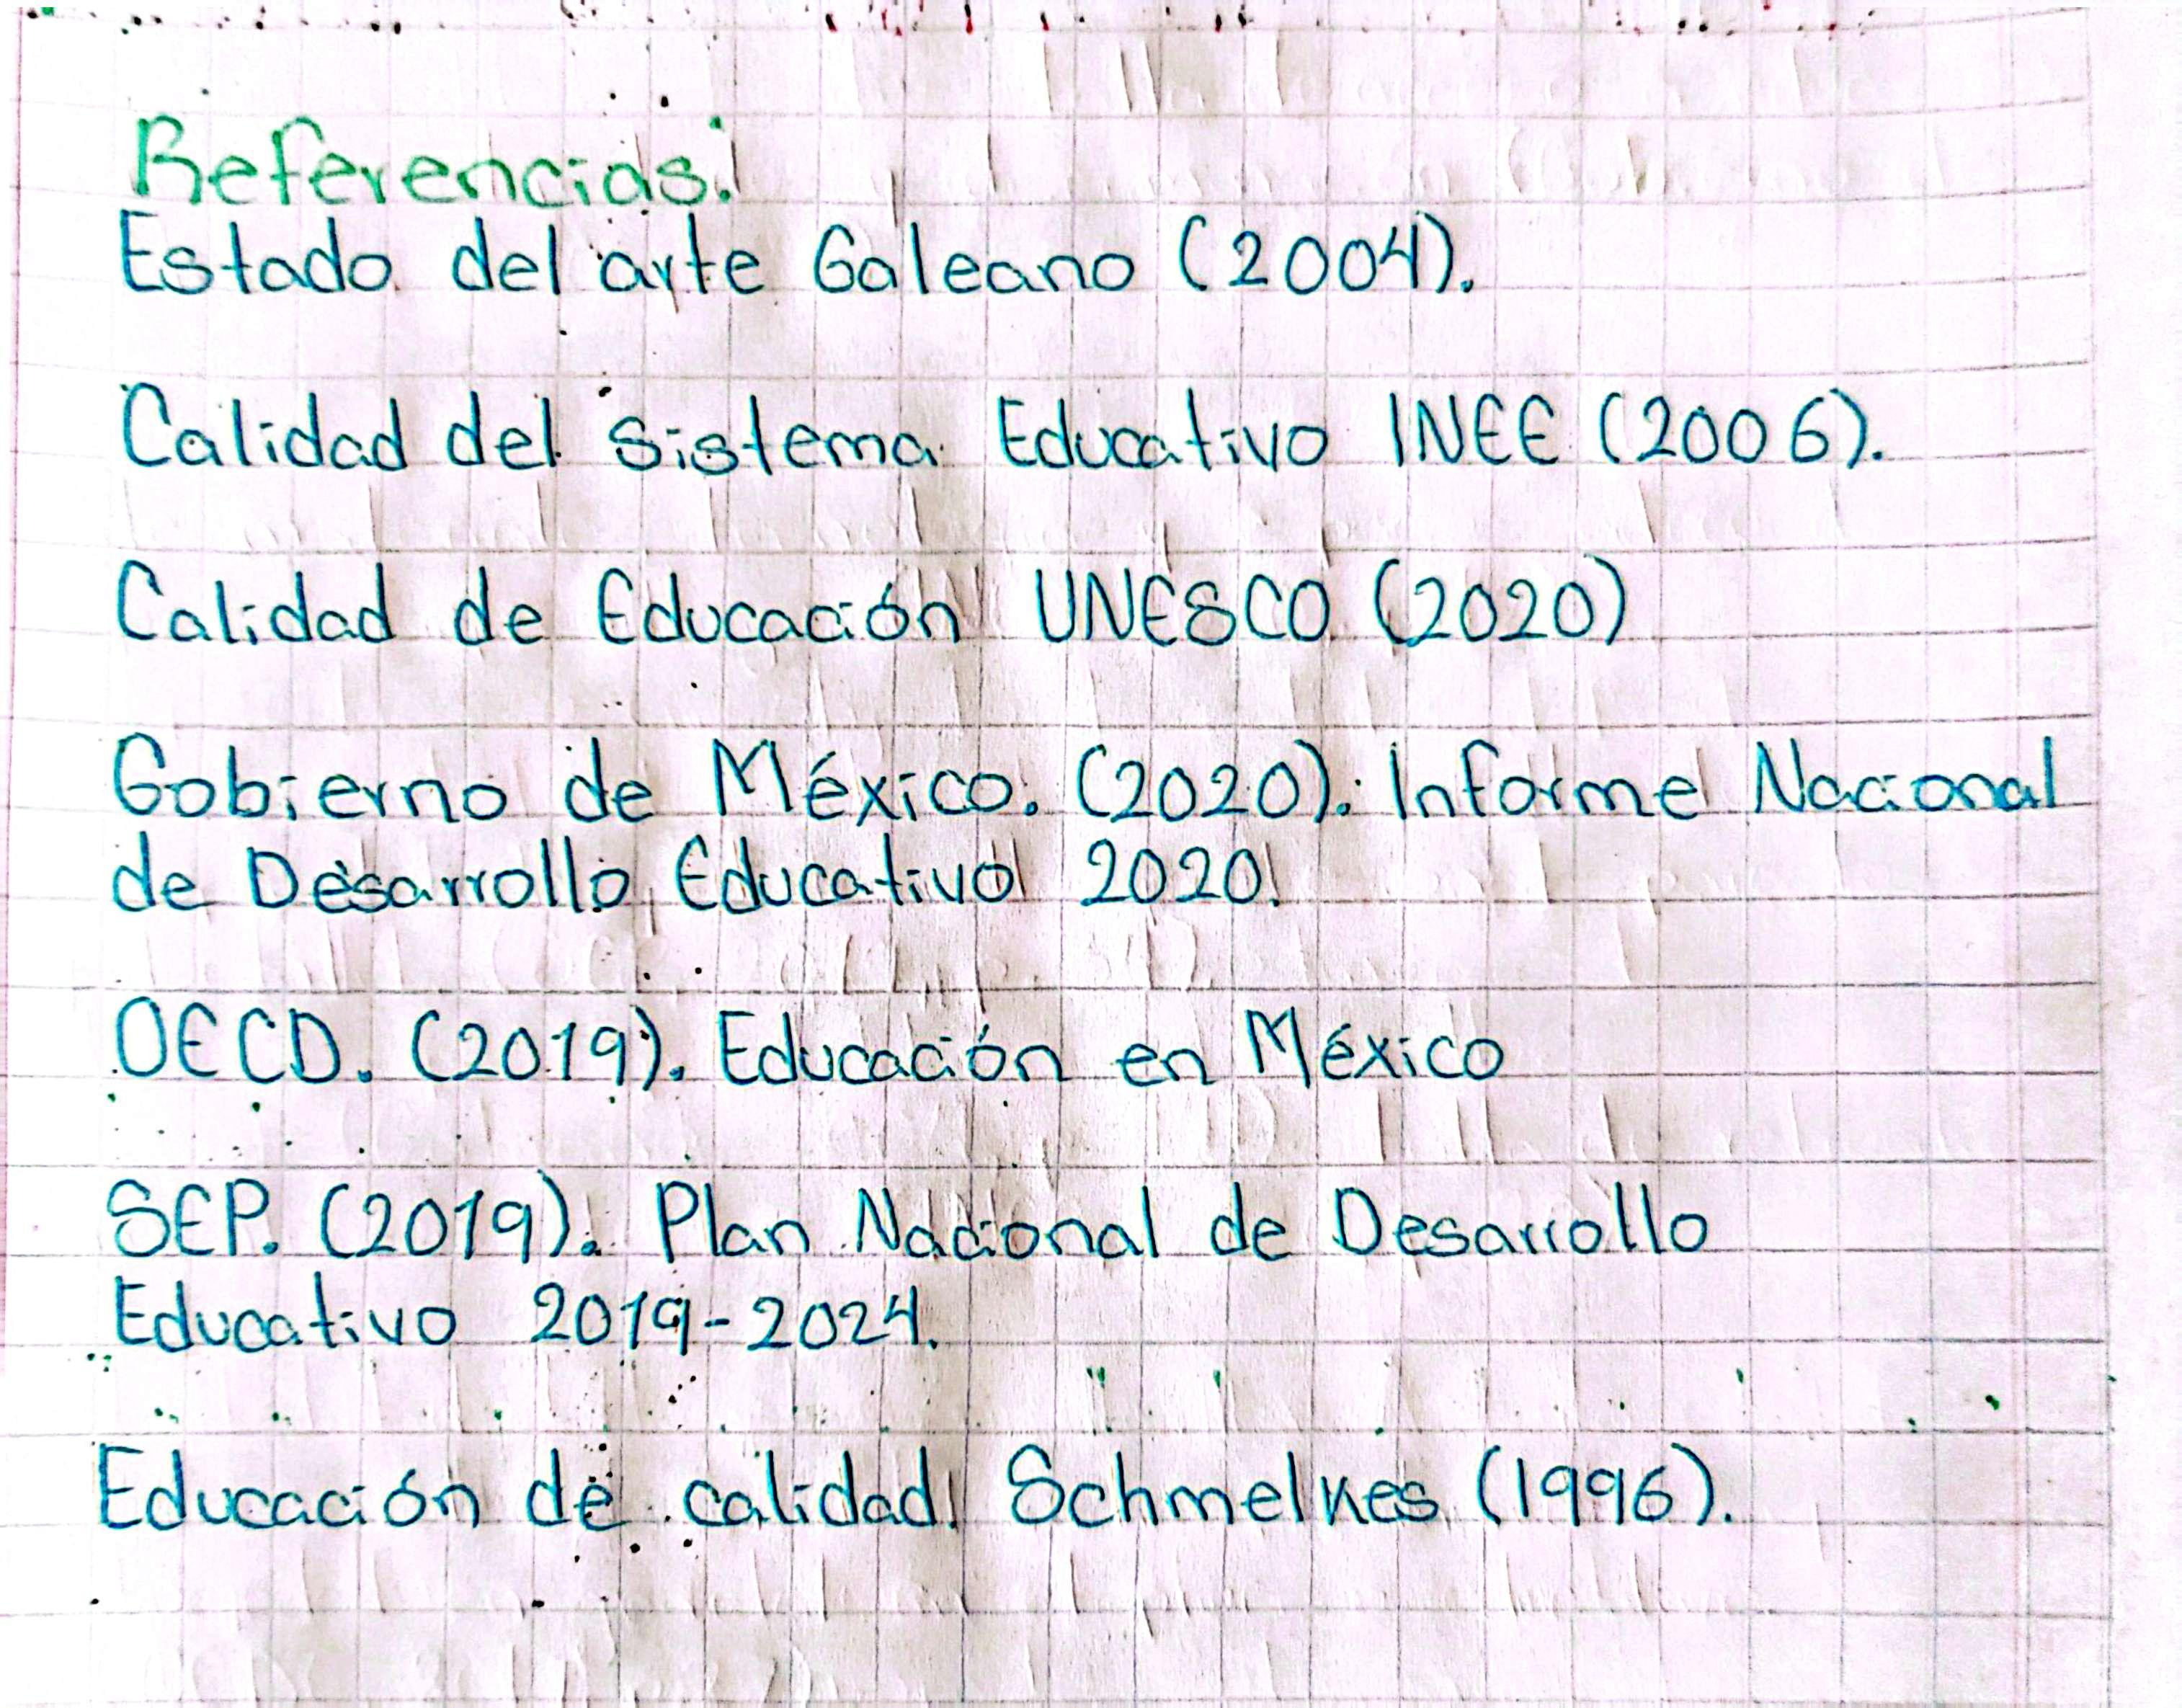 Referencias:
Estado del arte Galeano (2004).
Calidad del Sistema Educativo INEE (2006).
Calidad de Educación UNESCO (2020)
Gobierno de México. (2020). Informe Nacional
de Desarrollo Educativo 2020.
OECD. (2019). Educación en México
SEP. (2019). Plan Nacional de Desarrollo
Educativo 2019-2024.
Educación de calidad Schmelkes (1996).